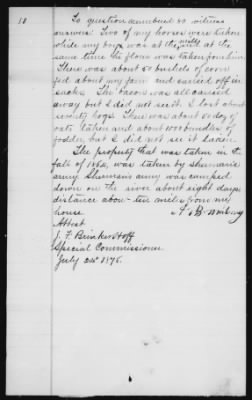 10
To question numbered 40 witness
answers. Two of my horses were taken
while my boys was at the mill at the
same time the flour was taken from him
There was about 50 bushels of corn
fed about my farm and carried off in
sacks. The bacon was all carried
away but I did not see it. I lost about
seventy hogs. There was about 60 doz of
oats taken and about 1000 bundles of
fodder, but I did not see it taken.
The property that was taken in the
fall of 1864, was taken by Sherman's
army. Sherman's army was camped
down on the river about eight days
distance about ten miles from my
house
Attest
J. F. Brinkerhoff
Special Commissioner
July 24th 1875.